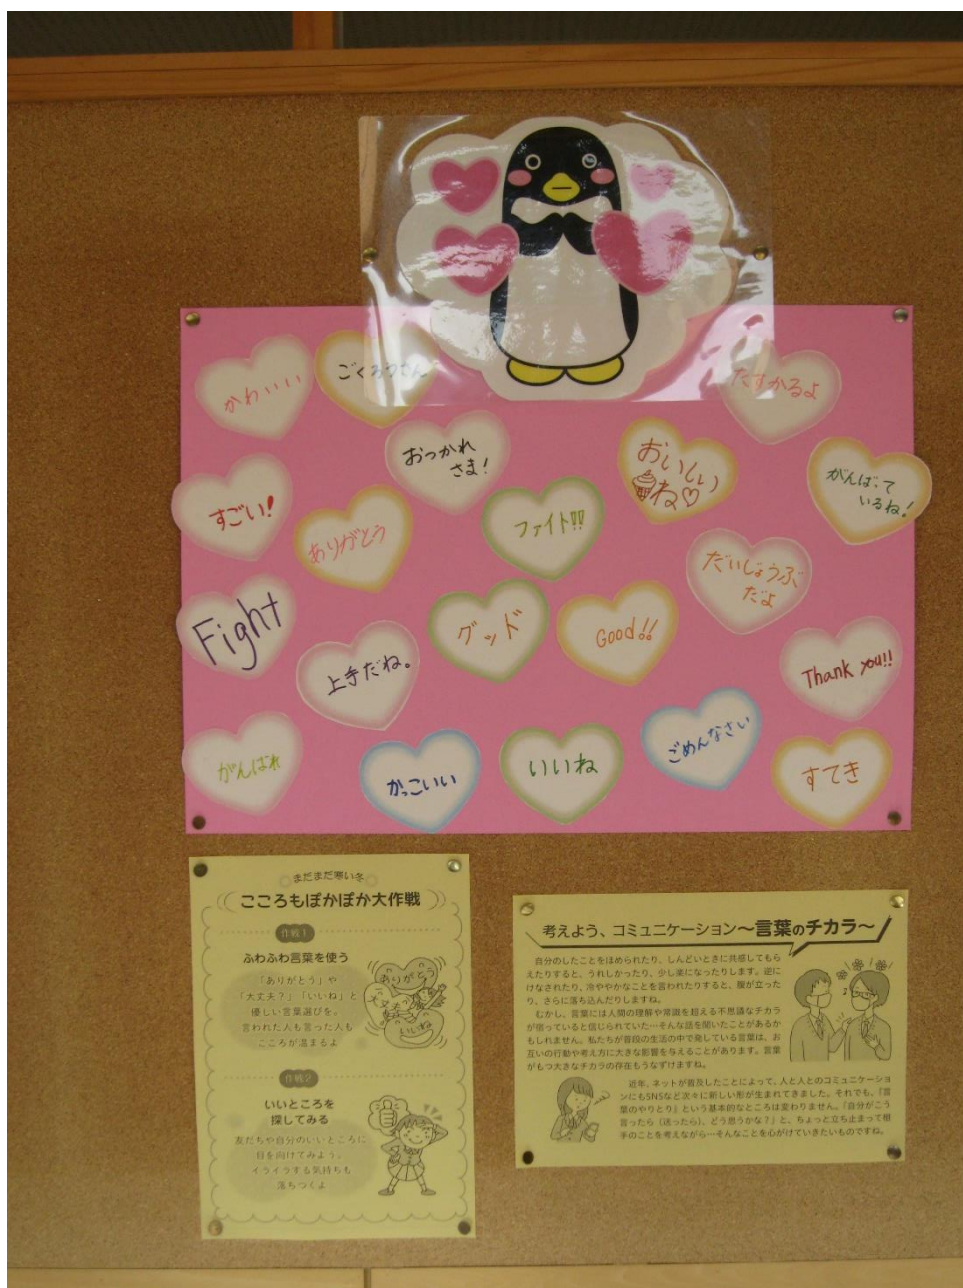 かわいい
ごくろうさん
たすかるよ
おつかれ
さま!
おいしい
ね♡
がんばって
いるね!
すごい!
ありがとう
ファイト!!!
だいじょうぶ
だよ
Fight
上手だね。
グッド
Good!!
Thank you!!
がんばれ
かっこいい
いいね
ごめんなさい
すてき
まだまだ寒い冬
こころもぽかぽか大作戦
作戦1
ふわふわ言葉を使う
「ありがとう」や
「大丈夫?」「いいね」と
優しい言葉選びを。
言われた人も言った人も
こころが温まるよ
ありがとう
大丈夫
いいね
作戦2
いいところを
探してみる
友だちや自分のいいところに
目を向けてみよう。
イライラする気持ちも
落ちつくよ
考えよう、コミュニケーション〜言葉のチカラ〜
自分のしたことをほめられたり、しんどいときに共感してもら
えたりすると、うれしかったり、少し楽になったりします。逆に
けなされたり、冷ややかなことを言われたりすると、腹が立った
り、さらに落ち込んだりしますね。
むかし、言葉には人間の理解や常識を超える不思議なチカラ
が宿っていると信じられていた…そんな話を聞いたことがあるか
もしれません。私たちが普段の生活の中で発している言葉は、お
互いの行動や考え方に大きな影響を与えることがあります。言葉
がもつ大きなチカラの存在もうなずけますね。
近年、ネットが普及したことによって、人と人とのコミュニケーショ
ンにもSNSなど次々に新しい形が生まれてきました。それでも、「言
葉のやりとり」という基本的なところは変わりません。「自分がこう
言ったら(送ったら)、どう思うかな?」と、ちょっと立ち止まって相
手のことを考えながら…そんなことを心がけていきたいものですね。